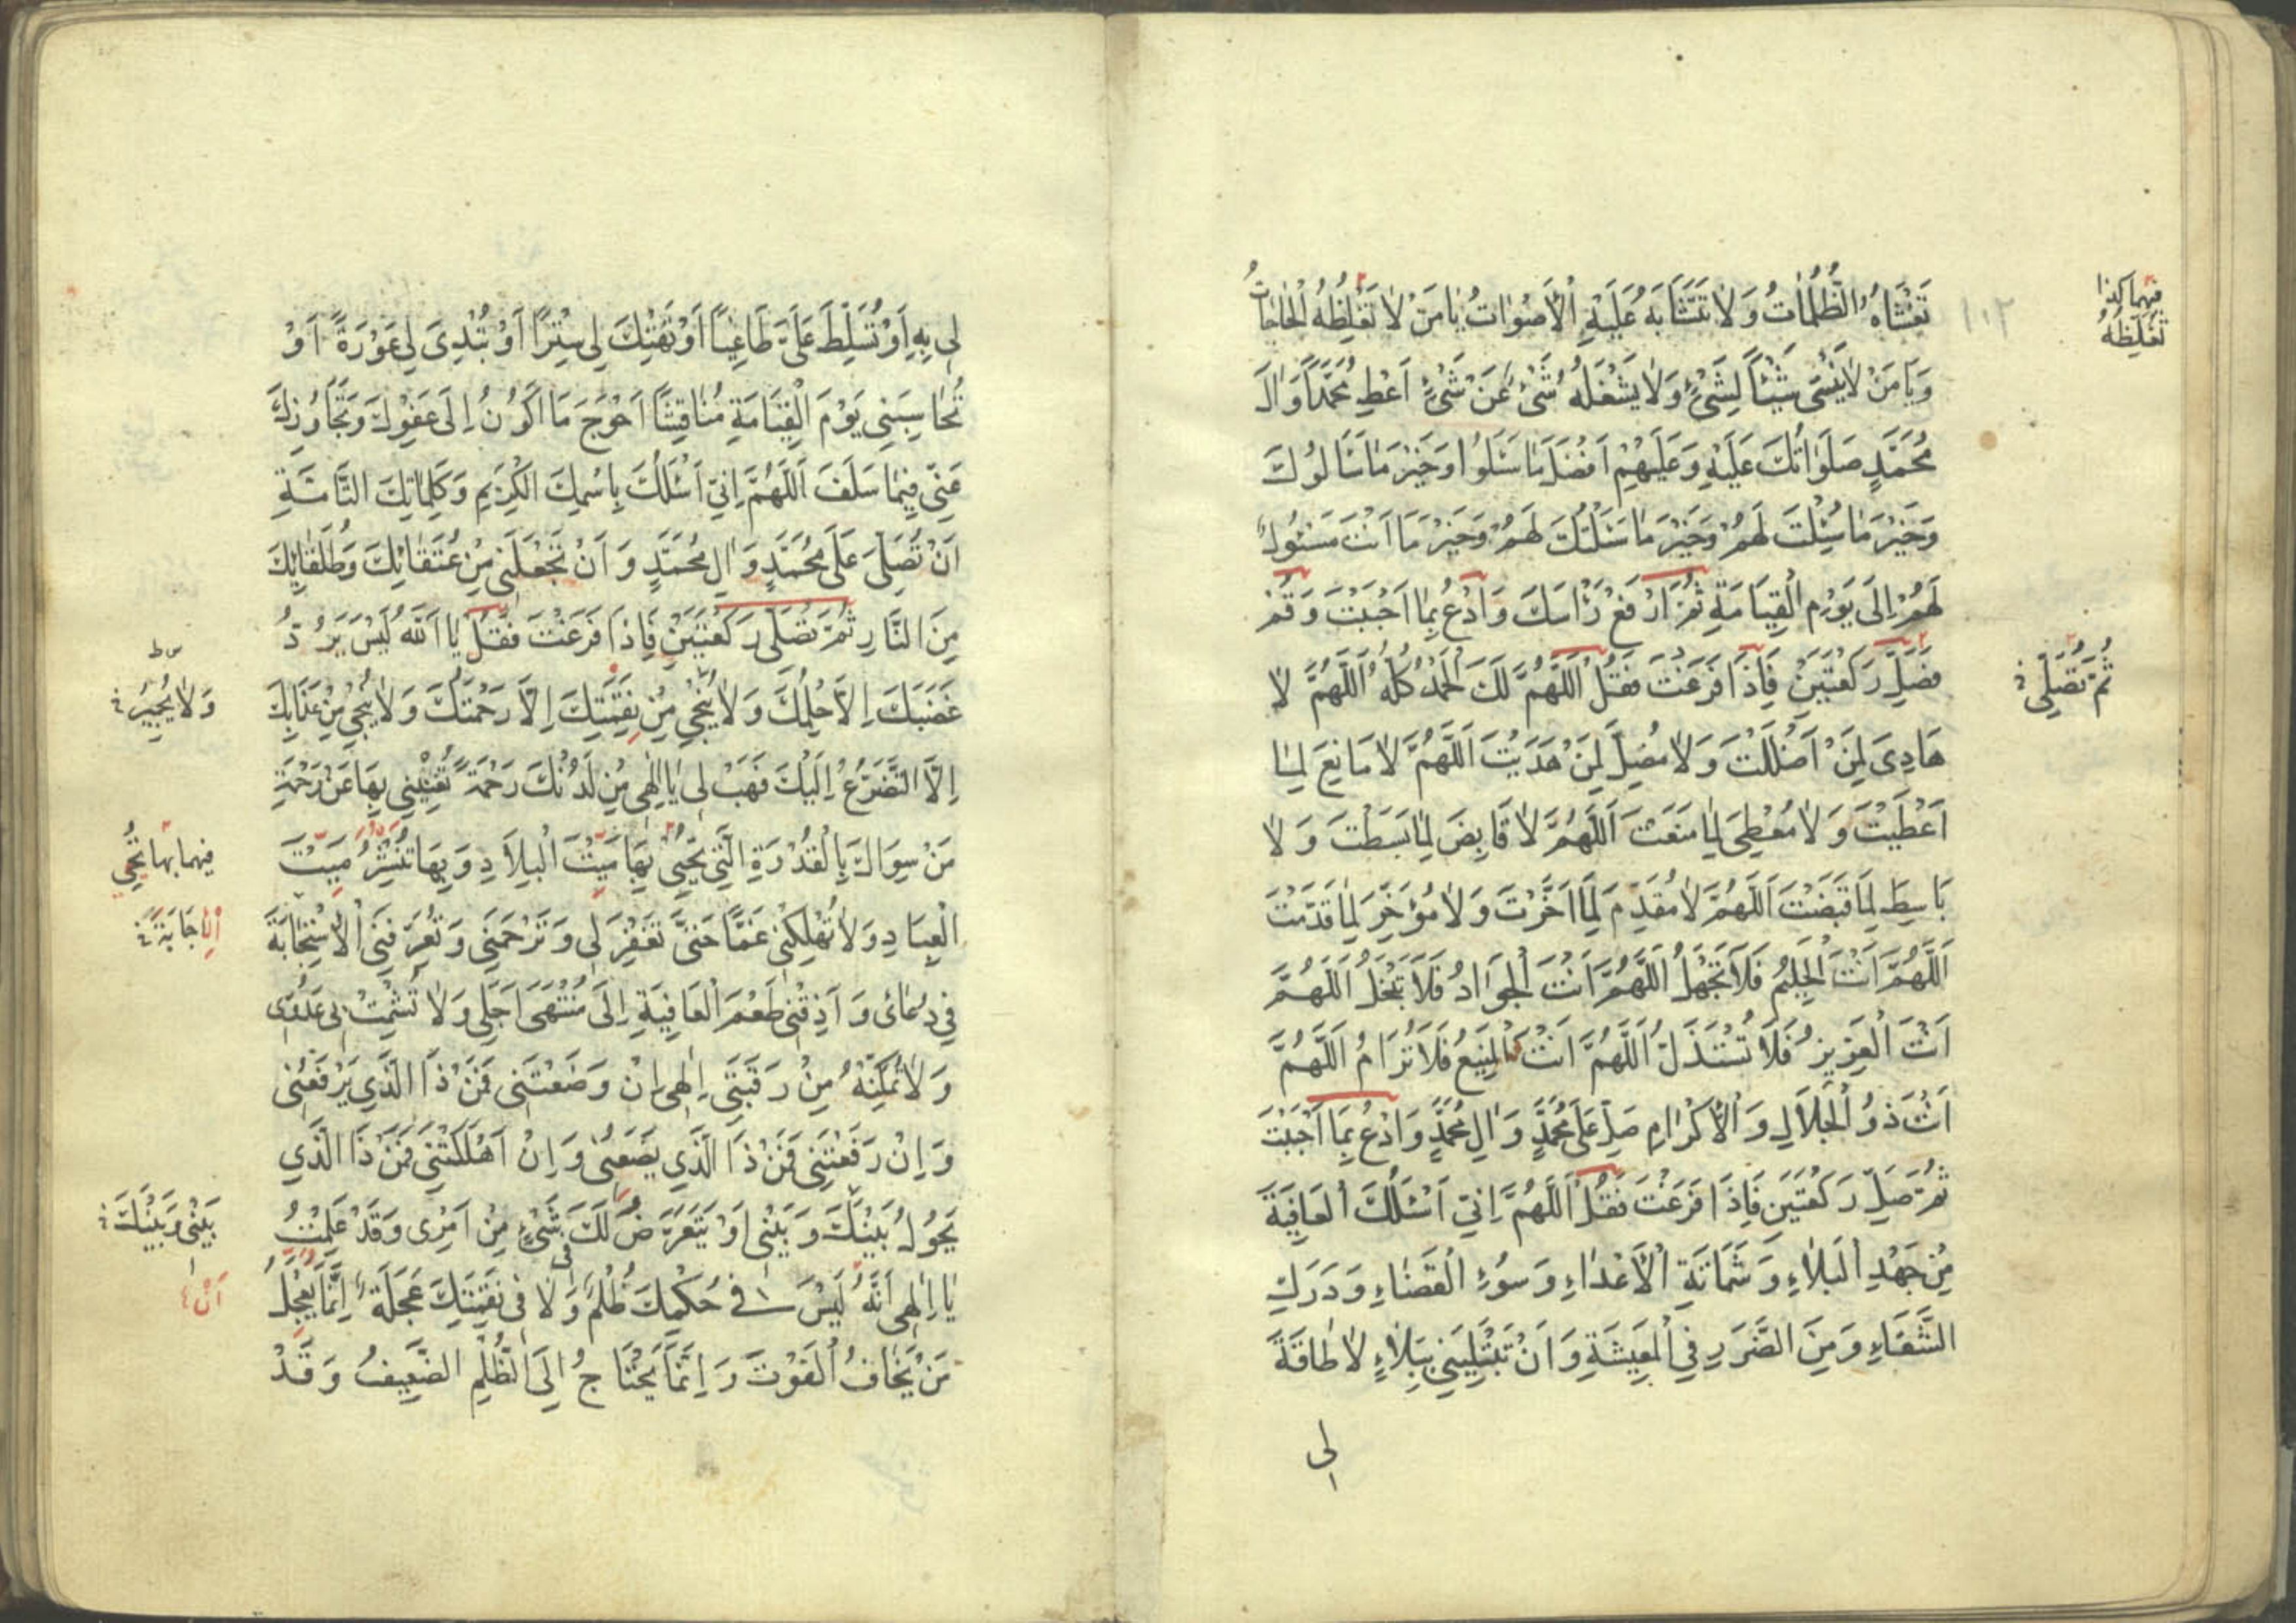 تَغْشَاهُ الظُّلُمَاتُ وَلَا تَتَشَابَهُ عَلَيْهِ الْأَصْوَاتُ يَا مَنْ لَا تُغَلِّظُهُ الْحَاجَاتُ
فيهما كذا
تُغَلِّظُهُ
١٠٢
وَيَا مَنْ لَا يَنْسَى شَيْئًا لِشَيْءٍ وَلَا يَشْغَلُهُ شَيْءٌ عَنْ شَيْءٍ اَعْطِ مُحَمَّدًا وَالَ
مُحَمَّدٍ صَلَوَاتُكَ عَلَيْهِ وَعَلَيْهِمْ اَفْضَلَ مَا سَئَلُوا وَخَيْرَ مَا سَأَلُوكَ
وَخَيْرَ مَا سُئِلْتَ لَهُمْ وَخَيْرَ مَا سَئَلْتُكَ لَهُمْ وَخَيْرَ مَا اَنْتَ مَسْئُولٌ
لَهُمْ اِلَى يَوْمِ الْقِيَامَةِ ثُمَّ ارْفَعْ رَاْسَكَ وَادْعُ بِمَا اَحْبَبْتَ وَقُمْ
فَصَلِّ رَكْعَتَيْنِ فَاِذَا فَرَغْتَ فَقُلْ اَللَّهُمَّ لَكَ الْحَمْدُ كُلُّهُ اَللَّهُمَّ لَا
ثُمَّ تُصَلِّي
هَادِىَ لِمَنْ اَضْلَلْتَ وَلَا مُضِلَّ لِمَنْ هَدَيْتَ اَللَّهُمَّ لَا مَانِعَ لِمَا
اَعْطَيْتَ وَلَا مُعْطِىَ لِمَا مَنَعْتَ اَللَّهُمَّ لَا قَابِضَ لِمَا بَسَطْتَ وَلَا
بَاسِطَ لِمَا قَبَضْتَ اَللَّهُمَّ لَا مُقَدِّمَ لِمَا اَخَّرْتَ وَلَا مُؤَخِّرَ لِمَا قَدَّمْتَ
اَللَّهُمَّ اَنْتَ الْحَلِيمُ فَلَا تَجْهَلُ اَللَّهُمَّ اَنْتَ الْجَوَادُ فَلَا تَبْخَلُ اَللَّهُمَّ
اَنْتَ الْعَزِيزُ فَلَا تُسْتَذَلُّ اَللَّهُمَّ اَنْتَ الْمَنِيعُ فَلَا تُرَامُ اَللَّهُمَّ
اَنْتَ ذُو الْجَلَالِ وَالْاِكْرَامِ صَلِّ عَلَى مُحَمَّدٍ وَالِ مُحَمَّدٍ وَادْعُ بِمَا اَحْبَبْتَ
ثُمَّ صَلِّ رَكْعَتَيْنِ فَاِذَا فَرَغْتَ فَقُلْ اَللَّهُمَّ اِنِّي اَسْئَلُكَ الْعَافِيَةَ
مِنْ جَهْدِ الْبَلَاءِ وَشَمَاتَةِ الْاَعْدَاءِ وَسُوءِ الْقَضَاءِ وَدَرَكِ
الشَّقَاءِ وَمِنَ الضَّرَرِ فِي الْمَعِيشَةِ وَاَنْ تَبْتَلِيَنِي بِبَلَاءٍ لَا طَاقَةَ
لِى
لِى بِهِ اَوْ تُسَلِّطَ عَلَىَّ طَاغِيًا اَوْ تَهْتِكَ لِى سِتْرًا اَوْ تُبْدِىَ لِى عَوْرَةً اَوْ
تُحَاسِبَنِي يَوْمَ الْقِيَامَةِ مُنَاقِشًا اَحْوَجَ مَا اَكُونُ اِلَى عَفْوِكَ وَتَجَاوُزِكَ
عَنِّي فِيمَا سَلَفَ اَللَّهُمَّ اِنِّي اَسْئَلُكَ بِاسْمِكَ الْكَرِيمِ وَكَلِمَاتِكَ التَّامَّةِ
اَنْ تُصَلِّىَ عَلَى مُحَمَّدٍ وَالِ مُحَمَّدٍ وَاَنْ تَجْعَلَنِي مِنْ عُتَقَائِكَ وَطُلَقَائِكَ
مِنَ النَّارِ ثُمَّ تُصَلِّى رَكْعَتَيْنِ فَاِذَا فَرَغْتَ فَقُلْ يَا اَللّٰهُ لَيْسَ يَرُدُّ
غَضَبَكَ اِلَّا حِلْمُكَ وَلَا يُنْجِي مِنْ نِقْمَتِكَ اِلَّا رَحْمَتُكَ وَلَا يُنْجِي مِنْ عَذَابِكَ
وَلَا يُجِيرُ
اِلَّا التَّضَرُّعُ اِلَيْكَ فَهَبْ لِى يَا اِلٰهِى مِنْ لَدُنْكَ رَحْمَةً تُغْنِيْنِي بِهَا عَنْ رَحْمَةِ
مَنْ سِوَاكَ بِالْقُدْرَةِ الَّتِي تُحْيِي بِهَا مَيْتَ الْبِلَادِ وَبِهَا تَنْشُرُ مَيْتَ
فيهما بها تُحْيِي
الْعِبَادِ وَلَا تُهْلِكْنِي غَمًّا حَتَّى تَغْفِرَ لِى وَتَرْحَمَنِي وَتُعَرِّفَنِي الْاِسْتِجَابَةَ
الْاِجَابَةَ
فِي دُعَائِى وَاَذِقْنِي طَعْمَ الْعَافِيَةِ اِلَى مُنْتَهَى اَجَلِي وَلَا تُشْمِتْ بِى عَدُوِّى
وَلَا تُمَكِّنْهُ مِنْ رَقَبَتِى اِلٰهِى اِنْ وَضَعْتَنِى فَمَنْ ذَا الَّذِي يَرْفَعُنِى
وَاِنْ رَفَعْتَنِي فَمَنْ ذَا الَّذِي يَضَعُنِى وَاِنْ اَهْلَكْتَنِى فَمَنْ ذَا الَّذِي
يَحُولُ بَيْنَكَ وَبَيْنِى اَوْ يَتَعَرَّضُ لَكَ فى شَيْءٍ مِنْ اَمْرِى وَقَدْ عَلِمْتُ
بَيْنِي وَبَيْنَكَ
يَا اِلٰهِى اَنَّهُ لَيْسَ فِي حُكْمِكَ ظُلْمٌ وَلَا فِى نَقِمَتِكَ عَجَلَةٌ اِنَّمَا يَعْجَلُ
اَنْ
مَنْ يَخَافُ الْفَوْتَ وَاِنَّمَا يَحْتَاجُ اِلَى الظُّلْمِ الضَّعِيفُ وَقَدْ